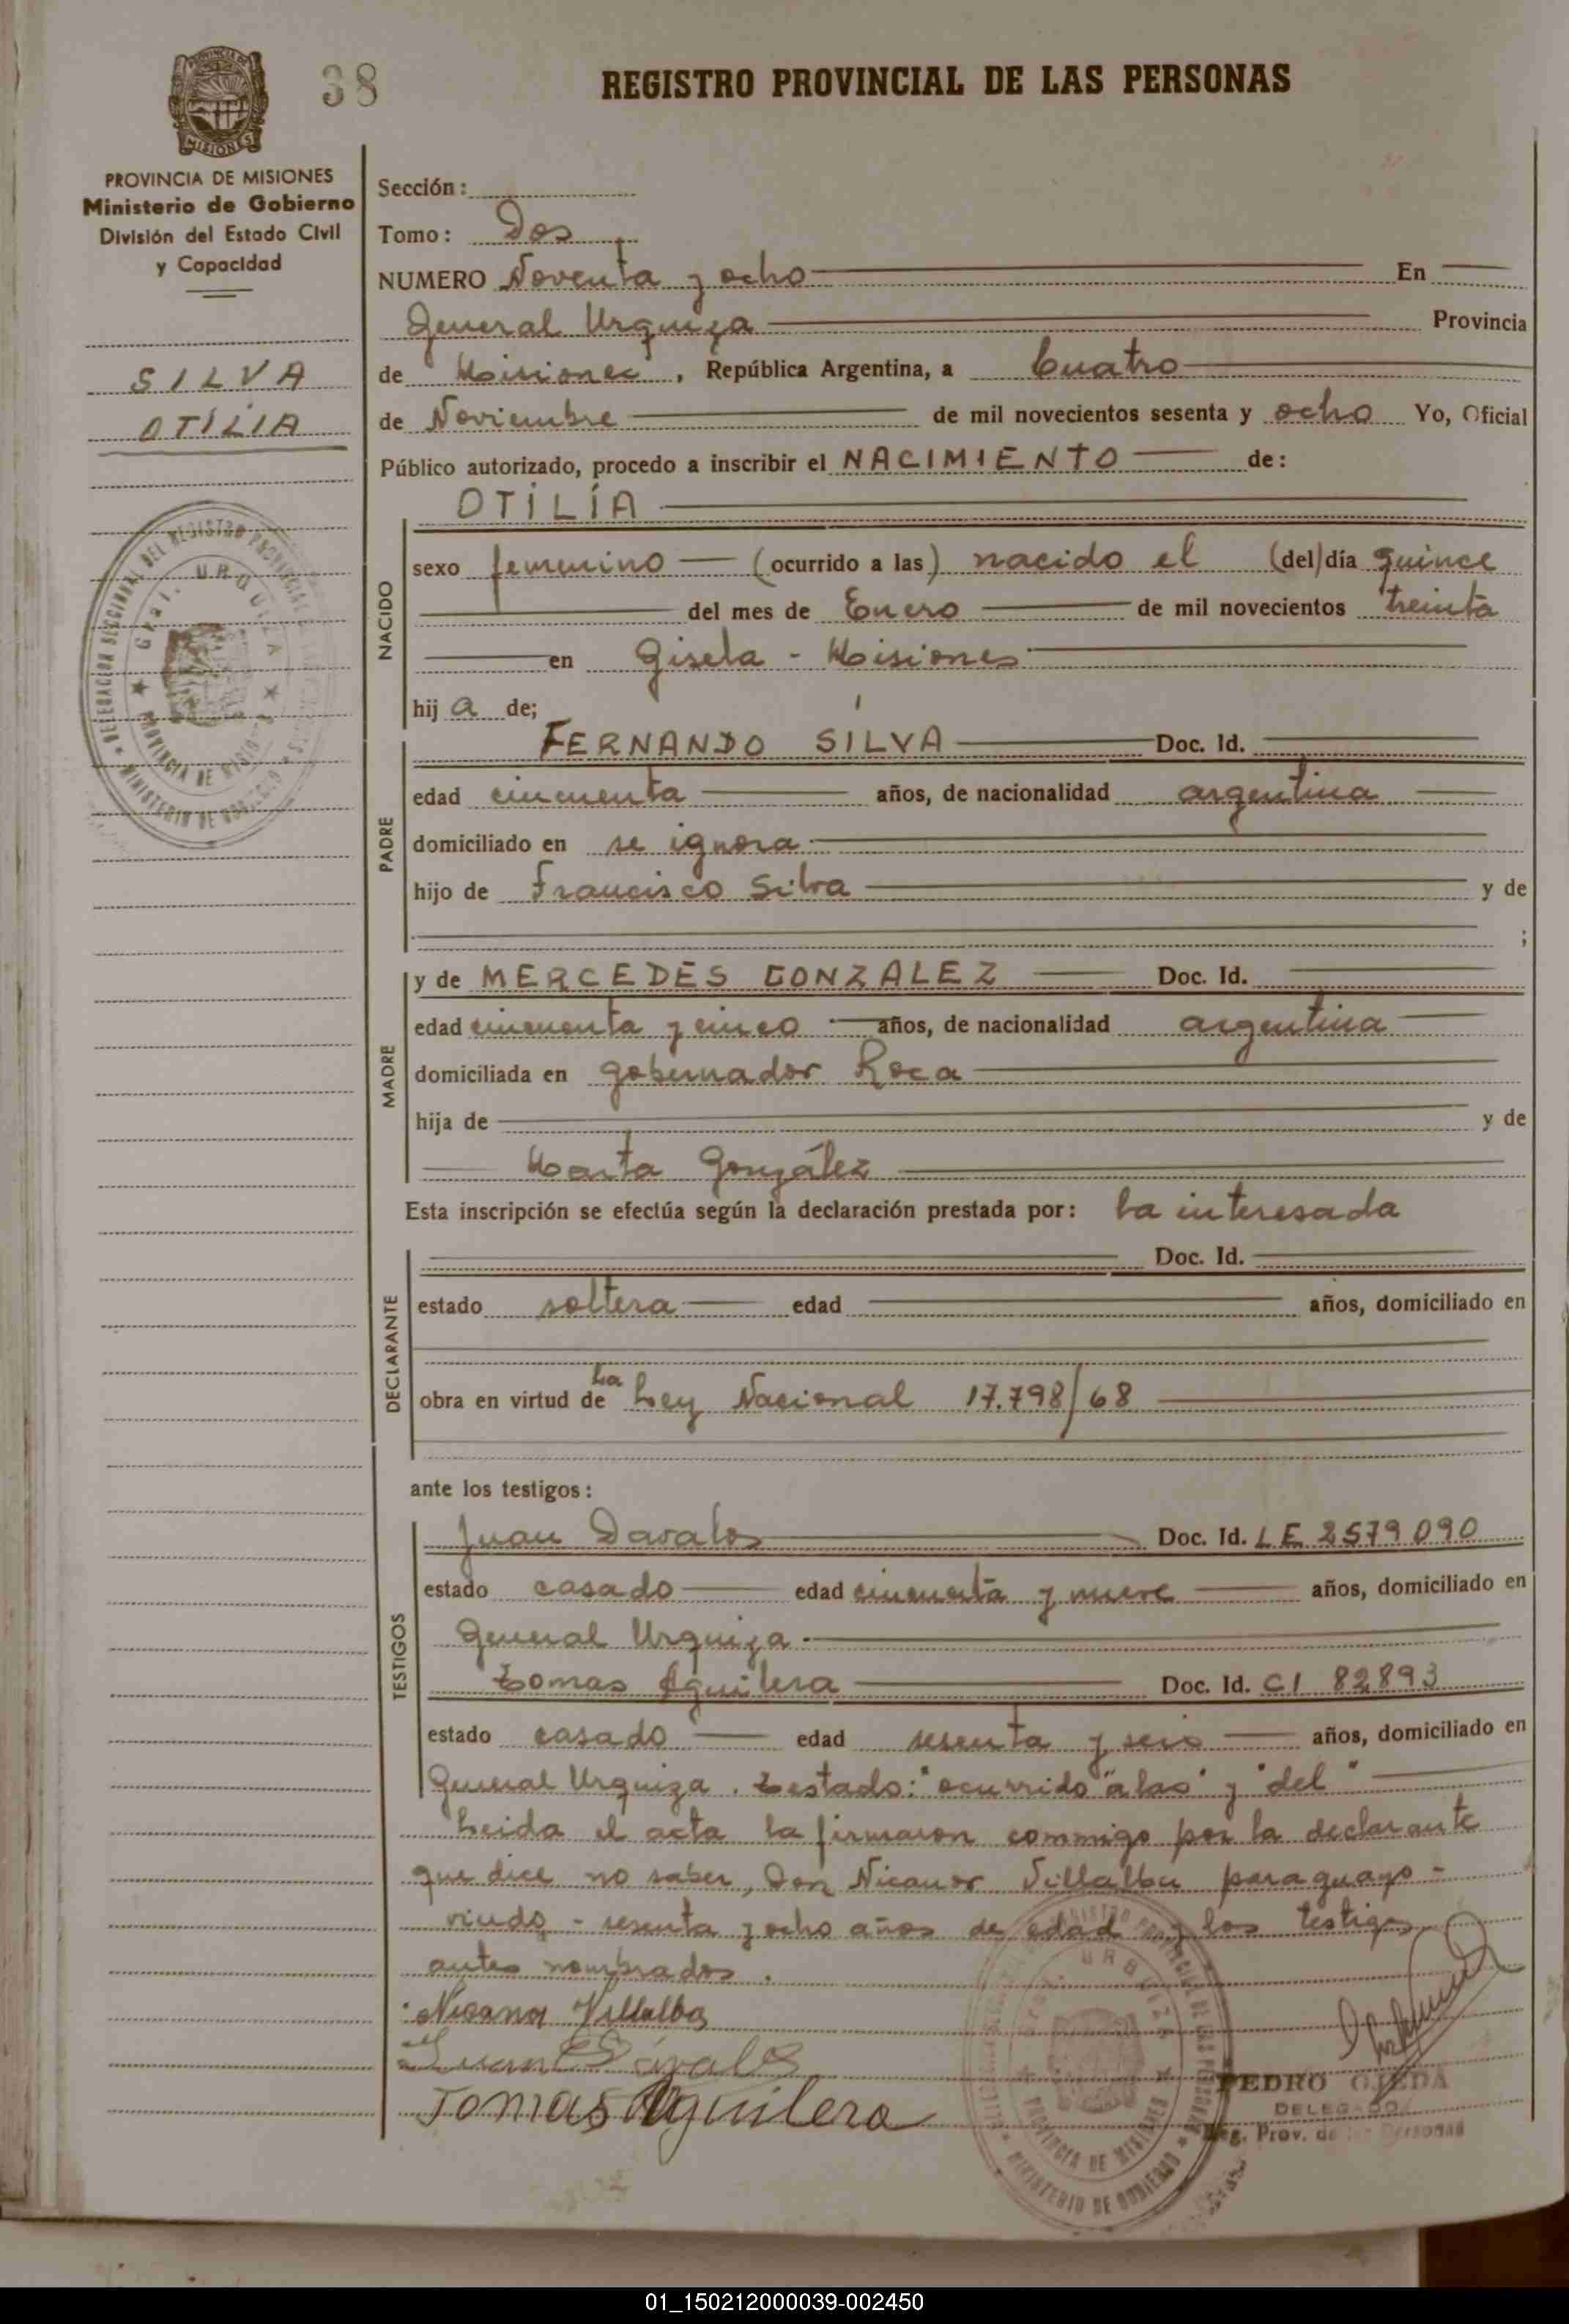 38
REGISTRO PROVINCIAL DE LAS PERSONAS
MISIONES
PROVINCIA DE MISIONES
Ministerio de Gobierno
División del Estado Civil
y Capacidad
SILVA
OTILIA
Sección:
Tomo: Dos
NUMERO Noventa y ocho En
General Urquiza Provincia
de Misiones, República Argentina, a Cuatro
de Noviembre de mil novecientos sesenta y ocho Yo, Oficial
Público autorizado, procedo a inscribir el NACIMIENTO de:
OTILIA
NACIDO
sexo femenino (ocurrido a las) nacido el (del) día quince
del mes de Enero de mil novecientos treinta
en Gisela - Misiones
hij a de;
PADRE
FERNANDO SILVA Doc. Id.
edad cincuenta años, de nacionalidad argentina
domiciliado en se ignora
hijo de Francisco Silva y de
;
MADRE
y de MERCEDES GONZALEZ Doc. Id.
edad cincuenta y cinco años, de nacionalidad argentina
domiciliada en Gobernador Roca
hija de y de
Marta González
Esta inscripción se efectúa según la declaración prestada por: La interesada
DECLARANTE
Doc. Id.
estado soltera edad años, domiciliado en
obra en virtud de la Ley Nacional 17.798/68
ante los testigos:
TESTIGOS
Juan Davalos Doc. Id. LE 2579090
estado casado edad cincuenta y nueve años, domiciliado en
General Urquiza
Tomas Aguilera Doc. Id. CI 82893
estado casado edad sesenta y seis años, domiciliado en
General Urquiza. Testado: "ocurrido" "a las" y "del"
Leida el acta la firmaron conmigo por la declarante
que dice no saber, Don Nicanor Villalba paraguayo -
viudo - sesenta y ocho años de edad y los testigos
antes nombrados.
Nicanor Villalba
Juan Davalos
Tomas Aguilera
PEDRO OJEDA
DELEGADO
Reg. Prov. de las Personas
DELEGACION SECCIONAL DEL REGISTRO PROVINCIAL DE LAS PERSONAS
GRAL. URQUIZA
PROVINCIA DE MISIONES
MINISTERIO DE GOBIERNO
01_150212000039-002450